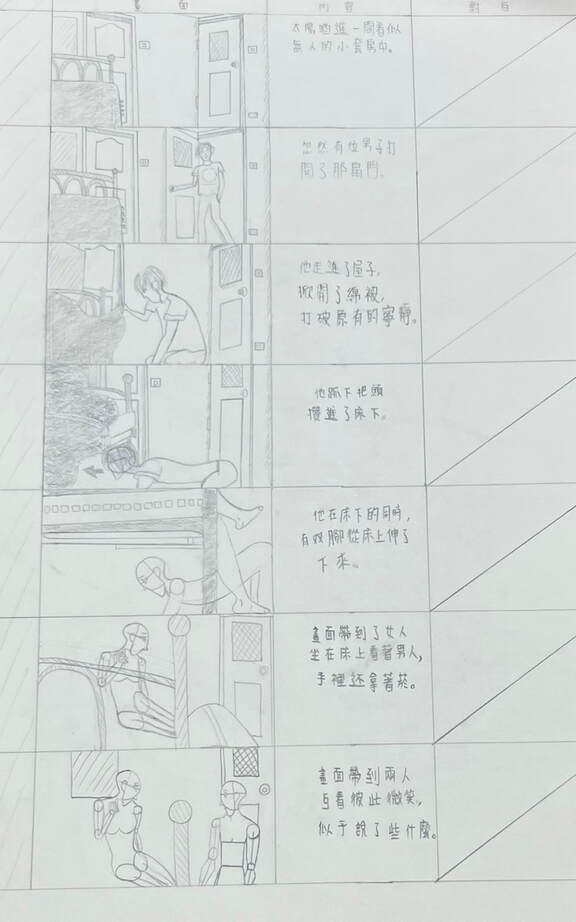 畫面
內容
對白
太陽洒進一間看似
無人的小套房中。
忽然有位男子打
開了那扇門、
他走進了屋子,
掀開了綿被,
打破原有的寧靜。
他趴下把頭
攢進了床下。
他在床下的同時,
有双腳從床上伸了
下來。
畫面帶到了女人
坐在床上看著男人,
手裡还拿著菸。
畫面帶到兩人
互看彼此微笑,
似乎說了些什麼。